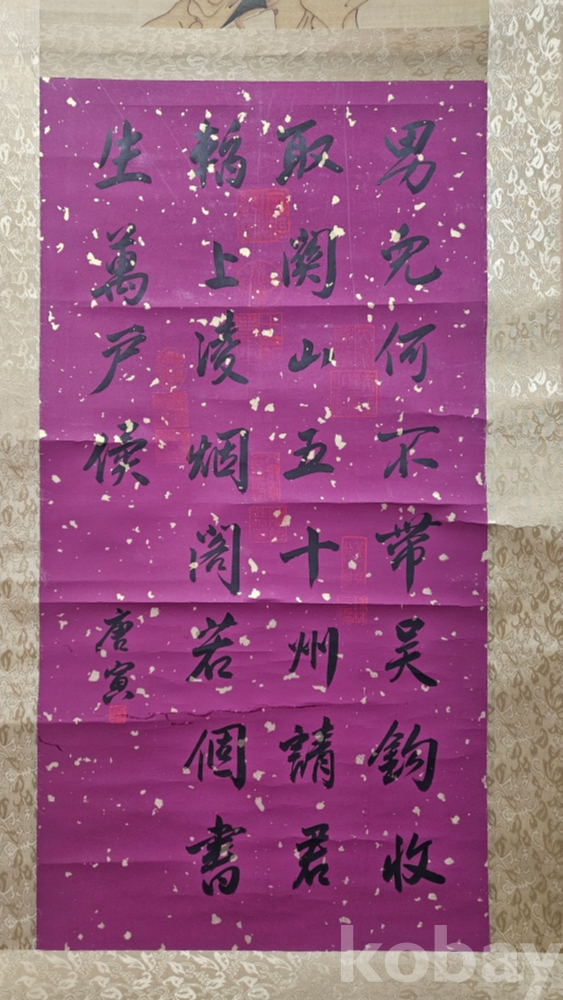 男兒何不帶吴鈎收
取關山五十州請君
暫上凌烟閣若個書
生萬户侯
唐寅
kobay